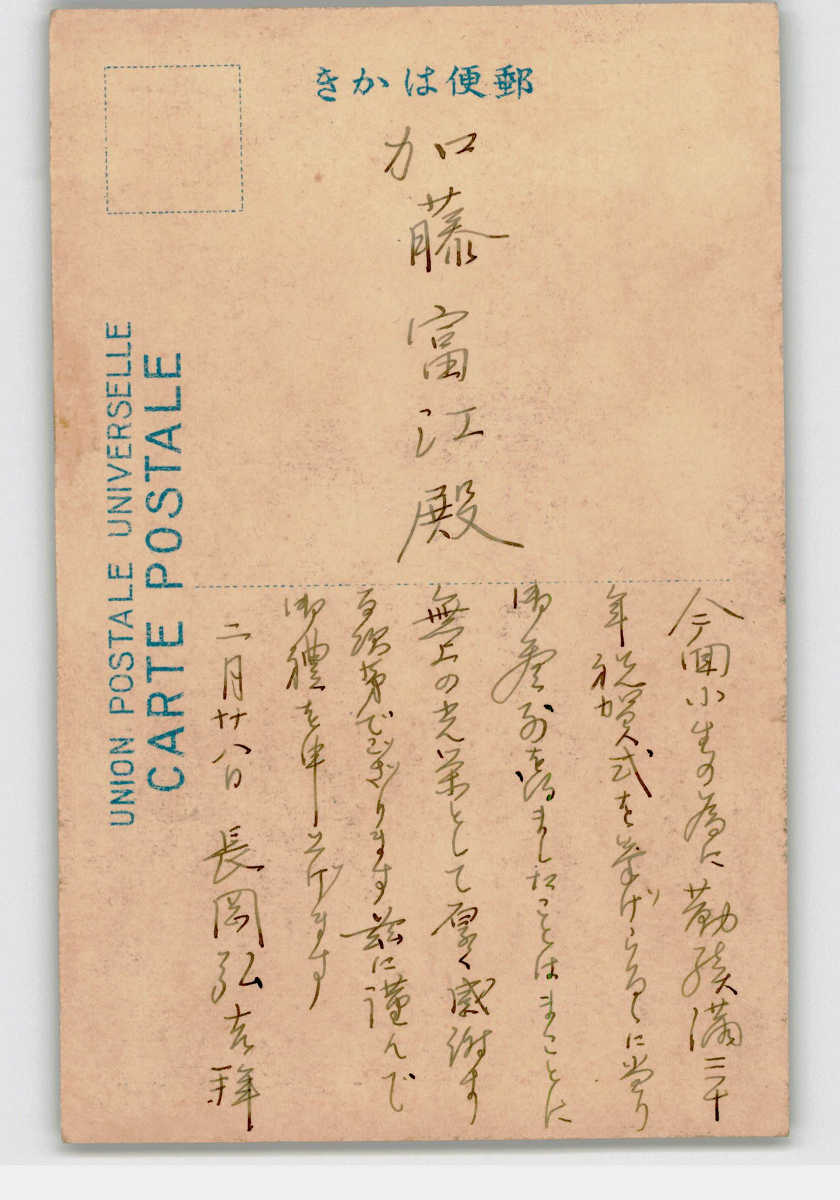 きかは便郵
加藤富江殿
今回小生の為に勤続満三十
年祝賀式を挙げらるゝに当り
御参列を得ましたことはまことに
無上の光栄として厚く感謝す
る次第でござります茲に謹んで
御禮を申上げます
二月廿八日 長岡弘吉拜
UNION POSTALE UNIVERSELLE
CARTE POSTALE